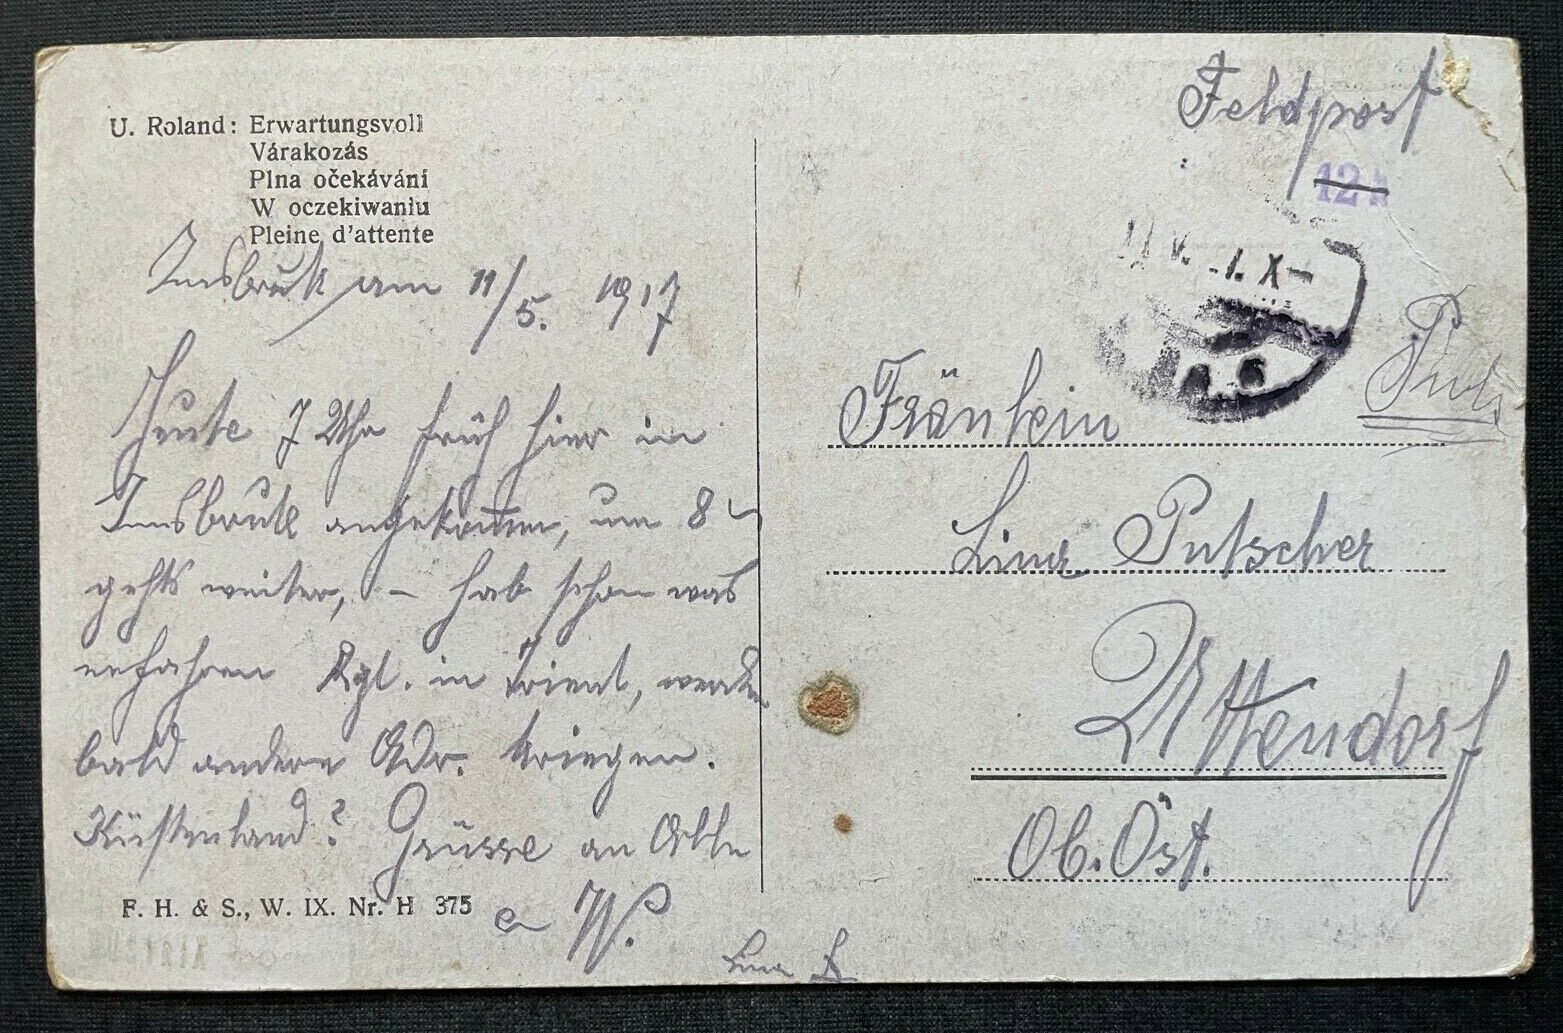 U. Roland: Erwartungsvoll
Várakozás
Plna očekávání
W oczekiwaniu
Pleine d'attente
Insbruk am 11/5. 1917
Heute 7 Uhr früh hier in
Insbruck angekom̅en, um 8
gehts weiter, – hab schon was
erfahren Rgt. in Trient, werden
bald andere Adr. kriegen.
Küstenland? Grüsse an Alle
W.
F. H. & S., W. IX. Nr. H 375
Lina
Feldpost
12
Fräulein
Lina Putscher
Uttendorf
Ob. Öst.